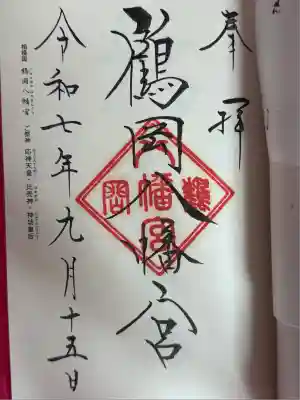 奉拝
鶴岡八幡宮
令和七年九月十五日
相模國 鶴岡八幡宮
御祭神 応神天皇・比売神・神功皇后